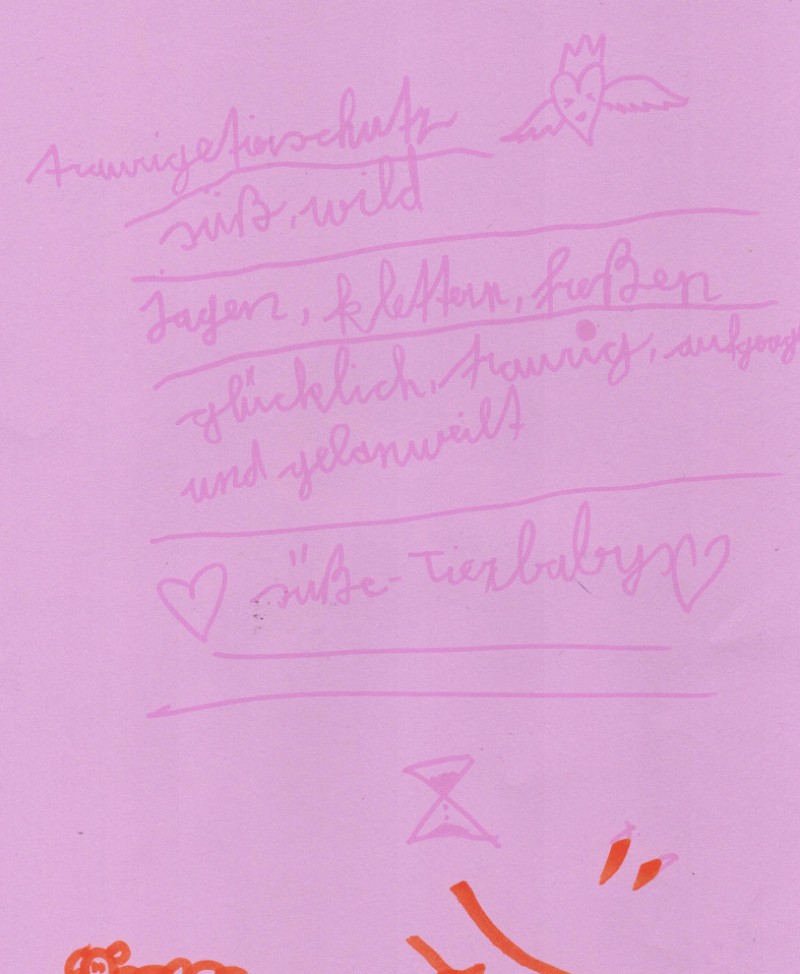 traurigetierschutz
süß, wild
Jagen, klettern, freßen
glücklich, traurig,
und gelanweilt
süße-Tierbabys